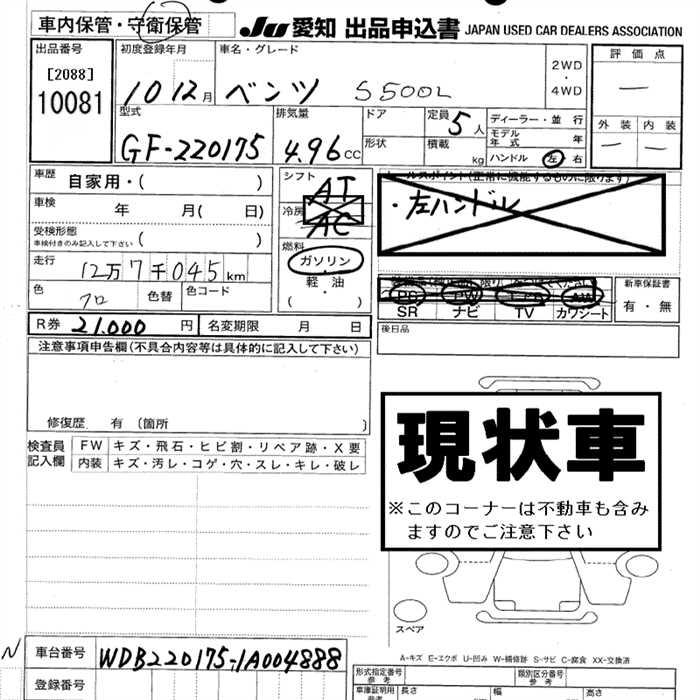 車内保管・守衛保管
JU 愛知 出品申込書 JAPAN USED CAR DEALERS ASSOCIATION
出品番号 初度登録年月 車名・グレード 2WD・4WD 評価点
[2088]
10081
10 12月 ベンツ S500L
―
型式 排気量 ドア 定員 5人 ディーラー・並行
GF-220175 4.96cc 形状 積載 kg モデル年式 年
ハンドル 左 右
外装 内装
― ―
車歴 自家用・( )
シフト AT
車検 年 月( 日)
冷房 AC
・左ハンドル
受検形態 ( )
車検付きのみ記入して下さい
燃料 ガソリン・軽・油 ( ・ )
走行 12万7千045km
色 クロ 色替 色コード
PS PW エアB AW
SR ナビ TV カワシート
新車保証書
有・無
R券 21.000円 名変期限 月 日
後日品
注意事項申告欄(不具合内容等は具体的に記入して下さい)
修復歴 有 〔箇所 〕
検査員記入欄 FW キズ・飛石・ヒビ割・リペア跡・X要
内装 キズ・汚レ・コゲ・穴・スレ・キレ・破レ
現状車
※このコーナーは不動車も含み
ますのでご注意下さい
スペア
A-キズ E-エクボ U-凹み W-補修跡 S-サビ C-腐食 XX-交換済
N 車台番号 WDB220175-1A004888
登録番号
形式指定番号 参考 類別区分番号 参考
車庫証明用 参考 長さ 幅 高さ